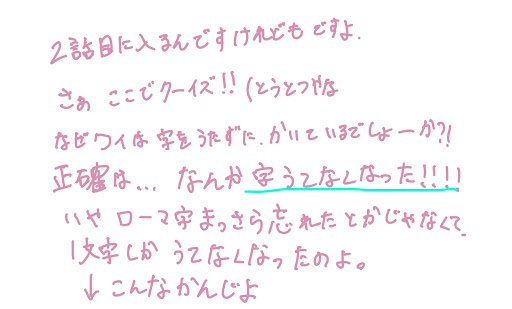 2話目に入るんですけれども ですよ.
さぁ ここでクーイズ!! (とうとつやな
なぜワイは 字をうたずに、かいているでしょーか?!
正確は... なんか 字うてなくなった!!!!
いや ローマ字まっさら忘れたとかじゃなくて、
1文字しか うてなくなったのよ。
↓ こんなかんじよ